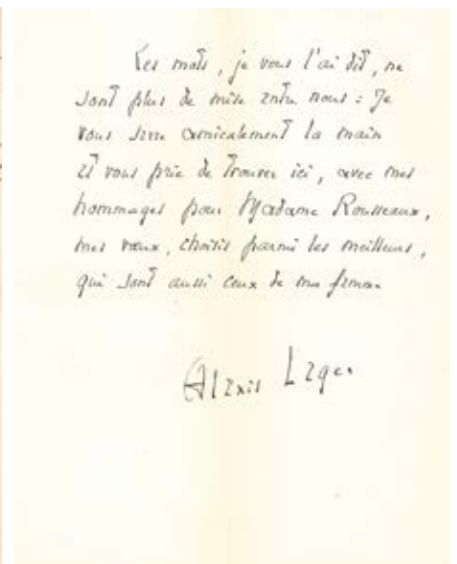 Les mots, je vous l'ai dit, ne
sont plus de mise entre nous : Je
vous serre amicalement la main
et vous prie de trouver ici, avec mes
hommages pour Madame Rousseaux,
mes vœux, choisis parmi les meilleurs,
qui sont aussi ceux de ma femme.
Alexis Leger